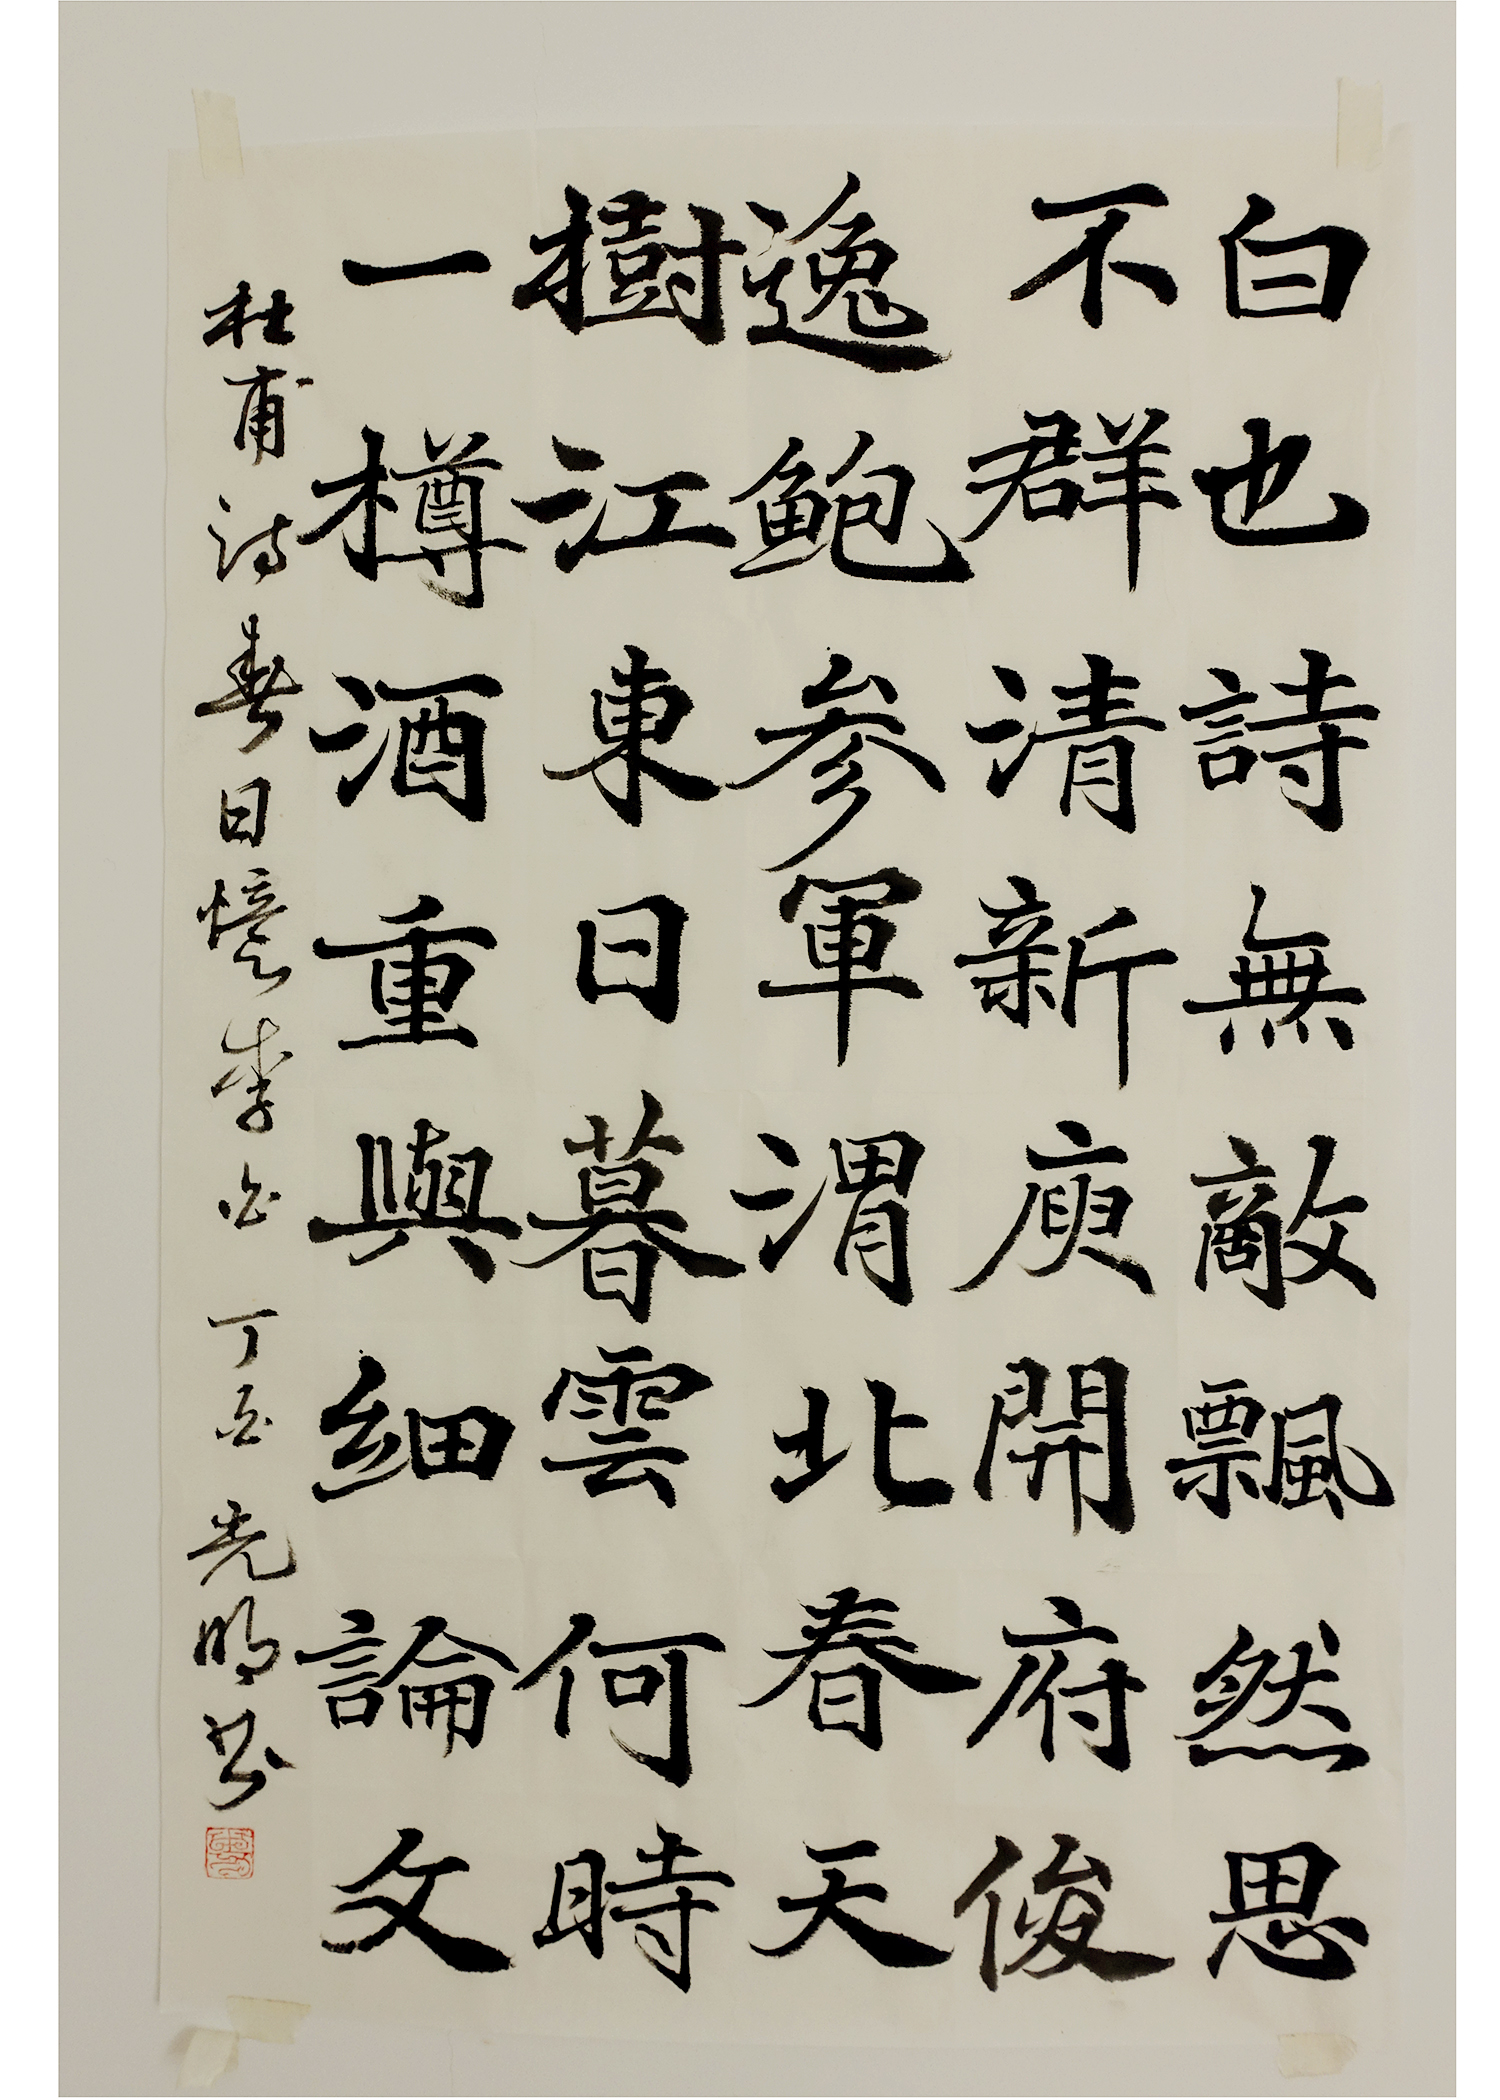 白也詩無敵飄然思
不群清新庾開府俊
逸鮑參軍渭北春天
樹江東日暮雲何時
一樽酒重與細論文
杜甫詩春日憶李白 丁酉 光明书